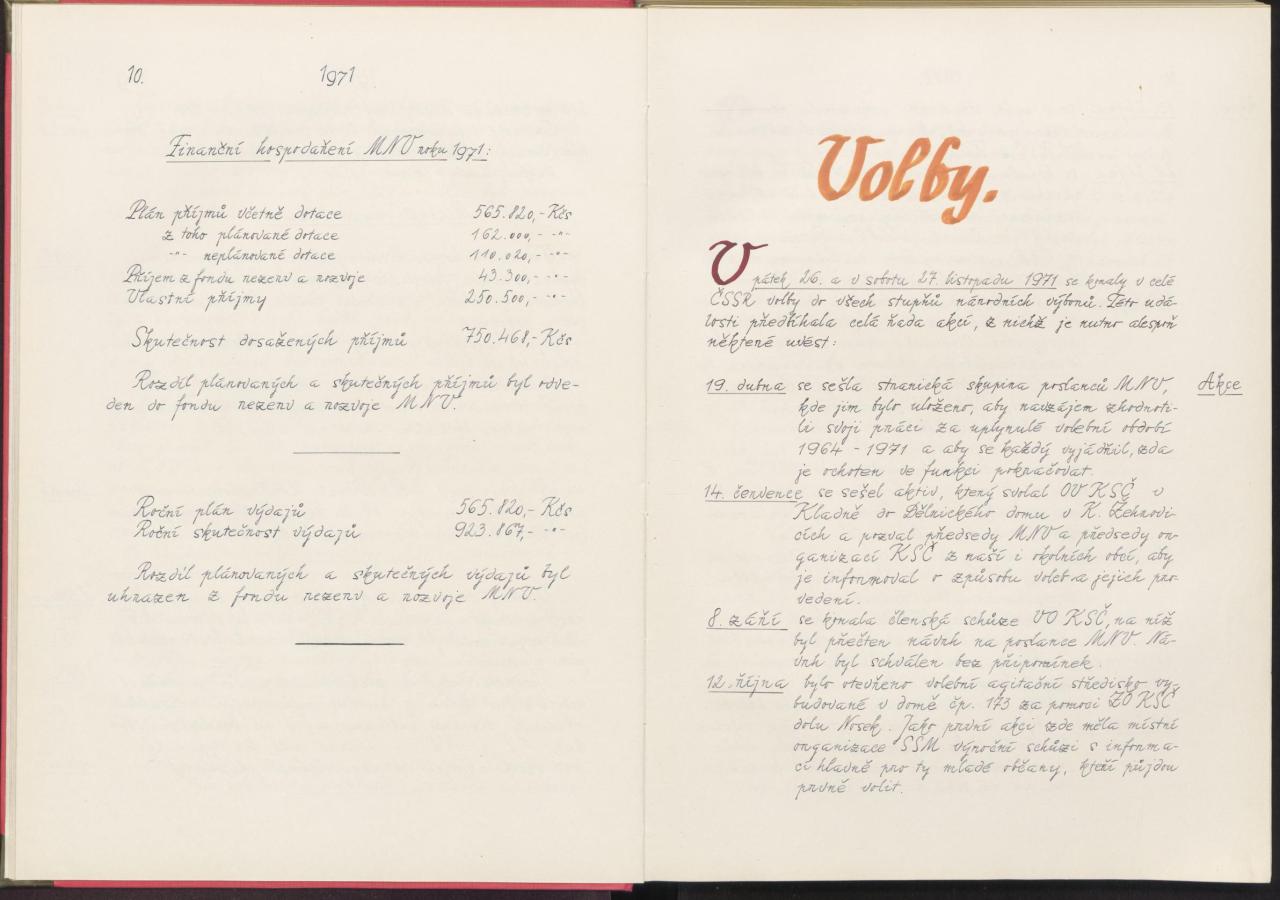 10.
1971
Finanční hospodaření MNV roku 1971:
Plán příjmů včetně dotace 565.820,- Kčs
z toho plánované dotace 162.000,- -"-
-"- neplánované dotace 110.020,- -"-
Příjem z fondu rezerv a rozvoje 43.300,- -"-
Vlastní příjmy 250.500,- -"-
Skutečnost dosažených příjmů 750.468,- Kčs
Rozdíl plánovaných a skutečných příjmů byl odve-
den do fondu rezerv a rozvoje MNV.
Roční plán výdajů 565.820,- Kčs
Roční skutečnost výdajů 923.867,- -"-
Rozdíl plánovaných a skutečných výdajů byl
uhrazen z fondu rezerv a rozvoje MNV.
Volby.
V pátek 26. a v sobotu 27. listopadu 1971 se konaly v celé
ČSSR volby do všech stupňů národních výborů. Této udá-
losti předbíhala celá řada akcí, z nichž je nutno alespoň
některé uvést:
19. dubna se sešla stranická skupina poslanců MNV, Akce
kde jim bylo uloženo, aby navzájem zhodnoti-
li svoji práci za uplynulé volební období
1964 - 1971 a aby se každý vyjádřil, zda
je ochoten ve funkci pokračovat.
14. července se sešel aktiv, který svolal OV KSČ v
Kladně do Dělnického domu v K. Žehrovi-
cích a pozval předsedy MNV a předsedy or-
ganizací KSČ z naší i okolních obcí, aby
je informoval o způsobu voleb a jejich pro-
vedení.
8. září se konala členská schůze VO KSČ, na níž
byl přečten návrh na poslance MNV. Ná-
vrh byl schválen bez připomínek.
12. října bylo otevřeno volební agitační středisko vy-
budované v domě čp. 173 za pomoci ZO KSČ
dolu Nosek. Jako první akci zde měla místní
organizace SSM výroční schůzi s informa-
cí hlavně pro ty mladé občany, kteří půjdou
prvně volit.